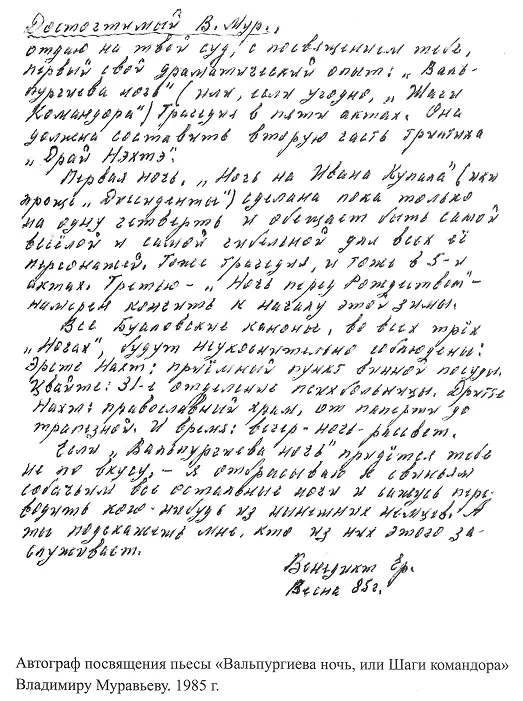 Досточтимый В. Мур.,
отдаю на твой суд, с посвящением тебе,
первый свой драматический опыт: „Валь-
пургиева ночь" (или, если угодно, „Шаги
Командора") Трагедия в пяти актах. Она
должна составить вторую часть триптиха
„Драй Нэхтэ".
Первая ночь, „Ночь на Ивана Купала" (или
проще „Диссиденты") сделана пока только
на одну четверть и обещает быть самой
весёлой и самой гибельной для всех её
персонажей. Тоже трагедия, и тоже в 5-и
актах. Третью – „Ночь перед Рождеством" –
намерен кончить к началу этой зимы.
Все Буаловские каноны, во всех трёх
„Ночах", будут неукоснительно соблюдены:
Эрсте Нахт: приёмный пункт винной посуды.
Цвайте: 31-е отделение психбольницы. Дритте
Нахт: православный храм, от паперти до
трапезной. И время: вечер-ночь-рассвет.
Если „Вальпургиева ночь" придётся тебе
не по вкусу, – я отбрасываю к свиньям
собачьим все остальные ночи и сажусь пере-
водить кого-нибудь из нынешних немцев. А
ты подскажешь мне, кто из них этого за-
служивает.
Бенедикт Ер.
Весна 85 г.
Автограф посвящения пьесы «Вальпургиева ночь, или Шаги командора»
Владимиру Муравьеву. 1985 г.